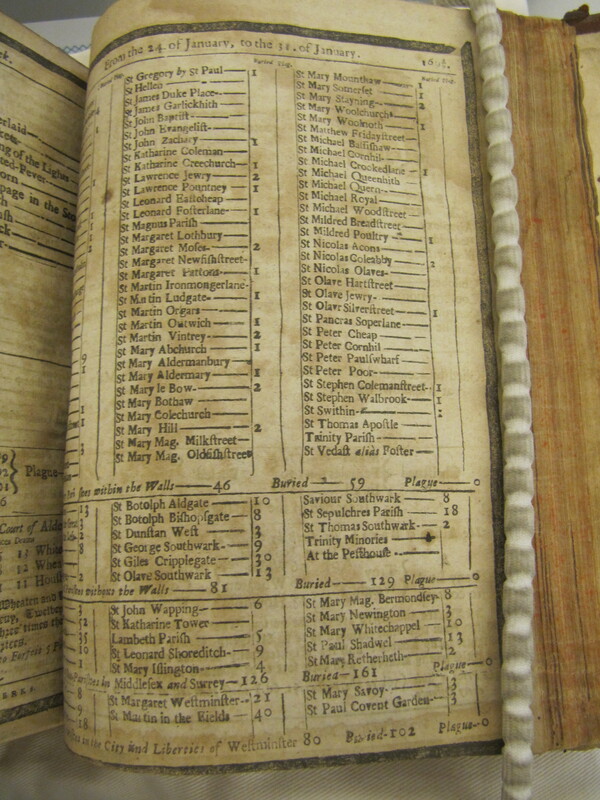 From the 24. of January, to the 31. of January.
Buried Plag.
St Gregory by St Paul — 1
St Hellen
St James Duke Place
St James Garlickhith
St John Baptist
St John Evangelist
St John Zachary — 1
St Katharine Coleman
St Katharine Creechurch — 1
St Lawrence Jewry — 2
St Lawrence Pountney — 1
St Leonard Eastcheap
St Leonard Fosterlane — 1
St Magnus Parish
St Margaret Lothbury
St Margaret Moses — 2
St Margaret Newfishstreet
St Margaret Pattons — 1
St Martin Ironmongerlane
St Martin Ludgate — 1
St Martin Orgars
St Martin Outwich — 1
St Martin Vintrey — 2
St Mary Abchurch — 1
St Mary Aldermanbury
St Mary Aldermary — 1
St Mary le Bow — 2
St Mary Bothaw
St Mary Colechurch
St Mary Hill — 2
St Mary Mag. Milkstreet
St Mary Mag. Oldfishstreet
Buried Plag.
St Mary Mounthaw
St Mary Somerset — 1
St Mary Stayning — 1
St Mary Woolchurch — 2
St Mary Woolnoth
St Matthew Fridaystreet
St Michael Bassishaw
St Michael Cornhil
St Michael Crookedlane
St Michael Queenhith — 1
St Michael Quern
St Michael Royal
St Michael Woodstreet
St Mildred Breadstreet
St Mildred Poultry
St Nicolas Acons — 1
St Nicolas Coleabby
St Nicolas Olaves
St Olave Hartstreet
St Olave Jewry
St Olave Silverstreet
St Pancras Soperlane — 1
St Peter Cheap
St Peter Cornhil
St Peter Paulswharf
St Peter Poor
St Stephen Colemanstreet — 1
St Stephen Walbrook — 1
St Swithin
St Thomas Apostle
Trinity Parish
St Vedast alias Foster
within the Walls — 46 Buried 59 Plague — 0
St Botolph Aldgate — 10
St Botolph Bishopsgate — 8
St Dunstan West — 3
St George Southwark — 9
St Giles Cripplegate — 30
St Olave Southwark — 13
Saviour Southwark — 8
St Sepulchres Parish — 18
St Thomas Southwark — 2
Trinity Minories
At the Pesthouse
without the Walls — 81 Buried — 129 Plague — 0
St John Wapping — 6
St Katharine Tower
Lambeth Parish — 5
St Leonard Shoreditch — 9
St Mary Islington — 4
St Mary Mag. Bermondsey 8
St Mary Newington — 3
St Mary Whitechappel — 10
St Paul Shadwel — 13
St Mary Retherheth — 2
Middlesex and Surrey — 126 Buried — 161 Plague — 0
St Margaret Westminster — 21
St Martin in the Fields — 40
St Mary Savoy — 3
St Paul Covent Garden — 3
in the City and Liberties of Westminster 80 Buried — 102 Plague — 0